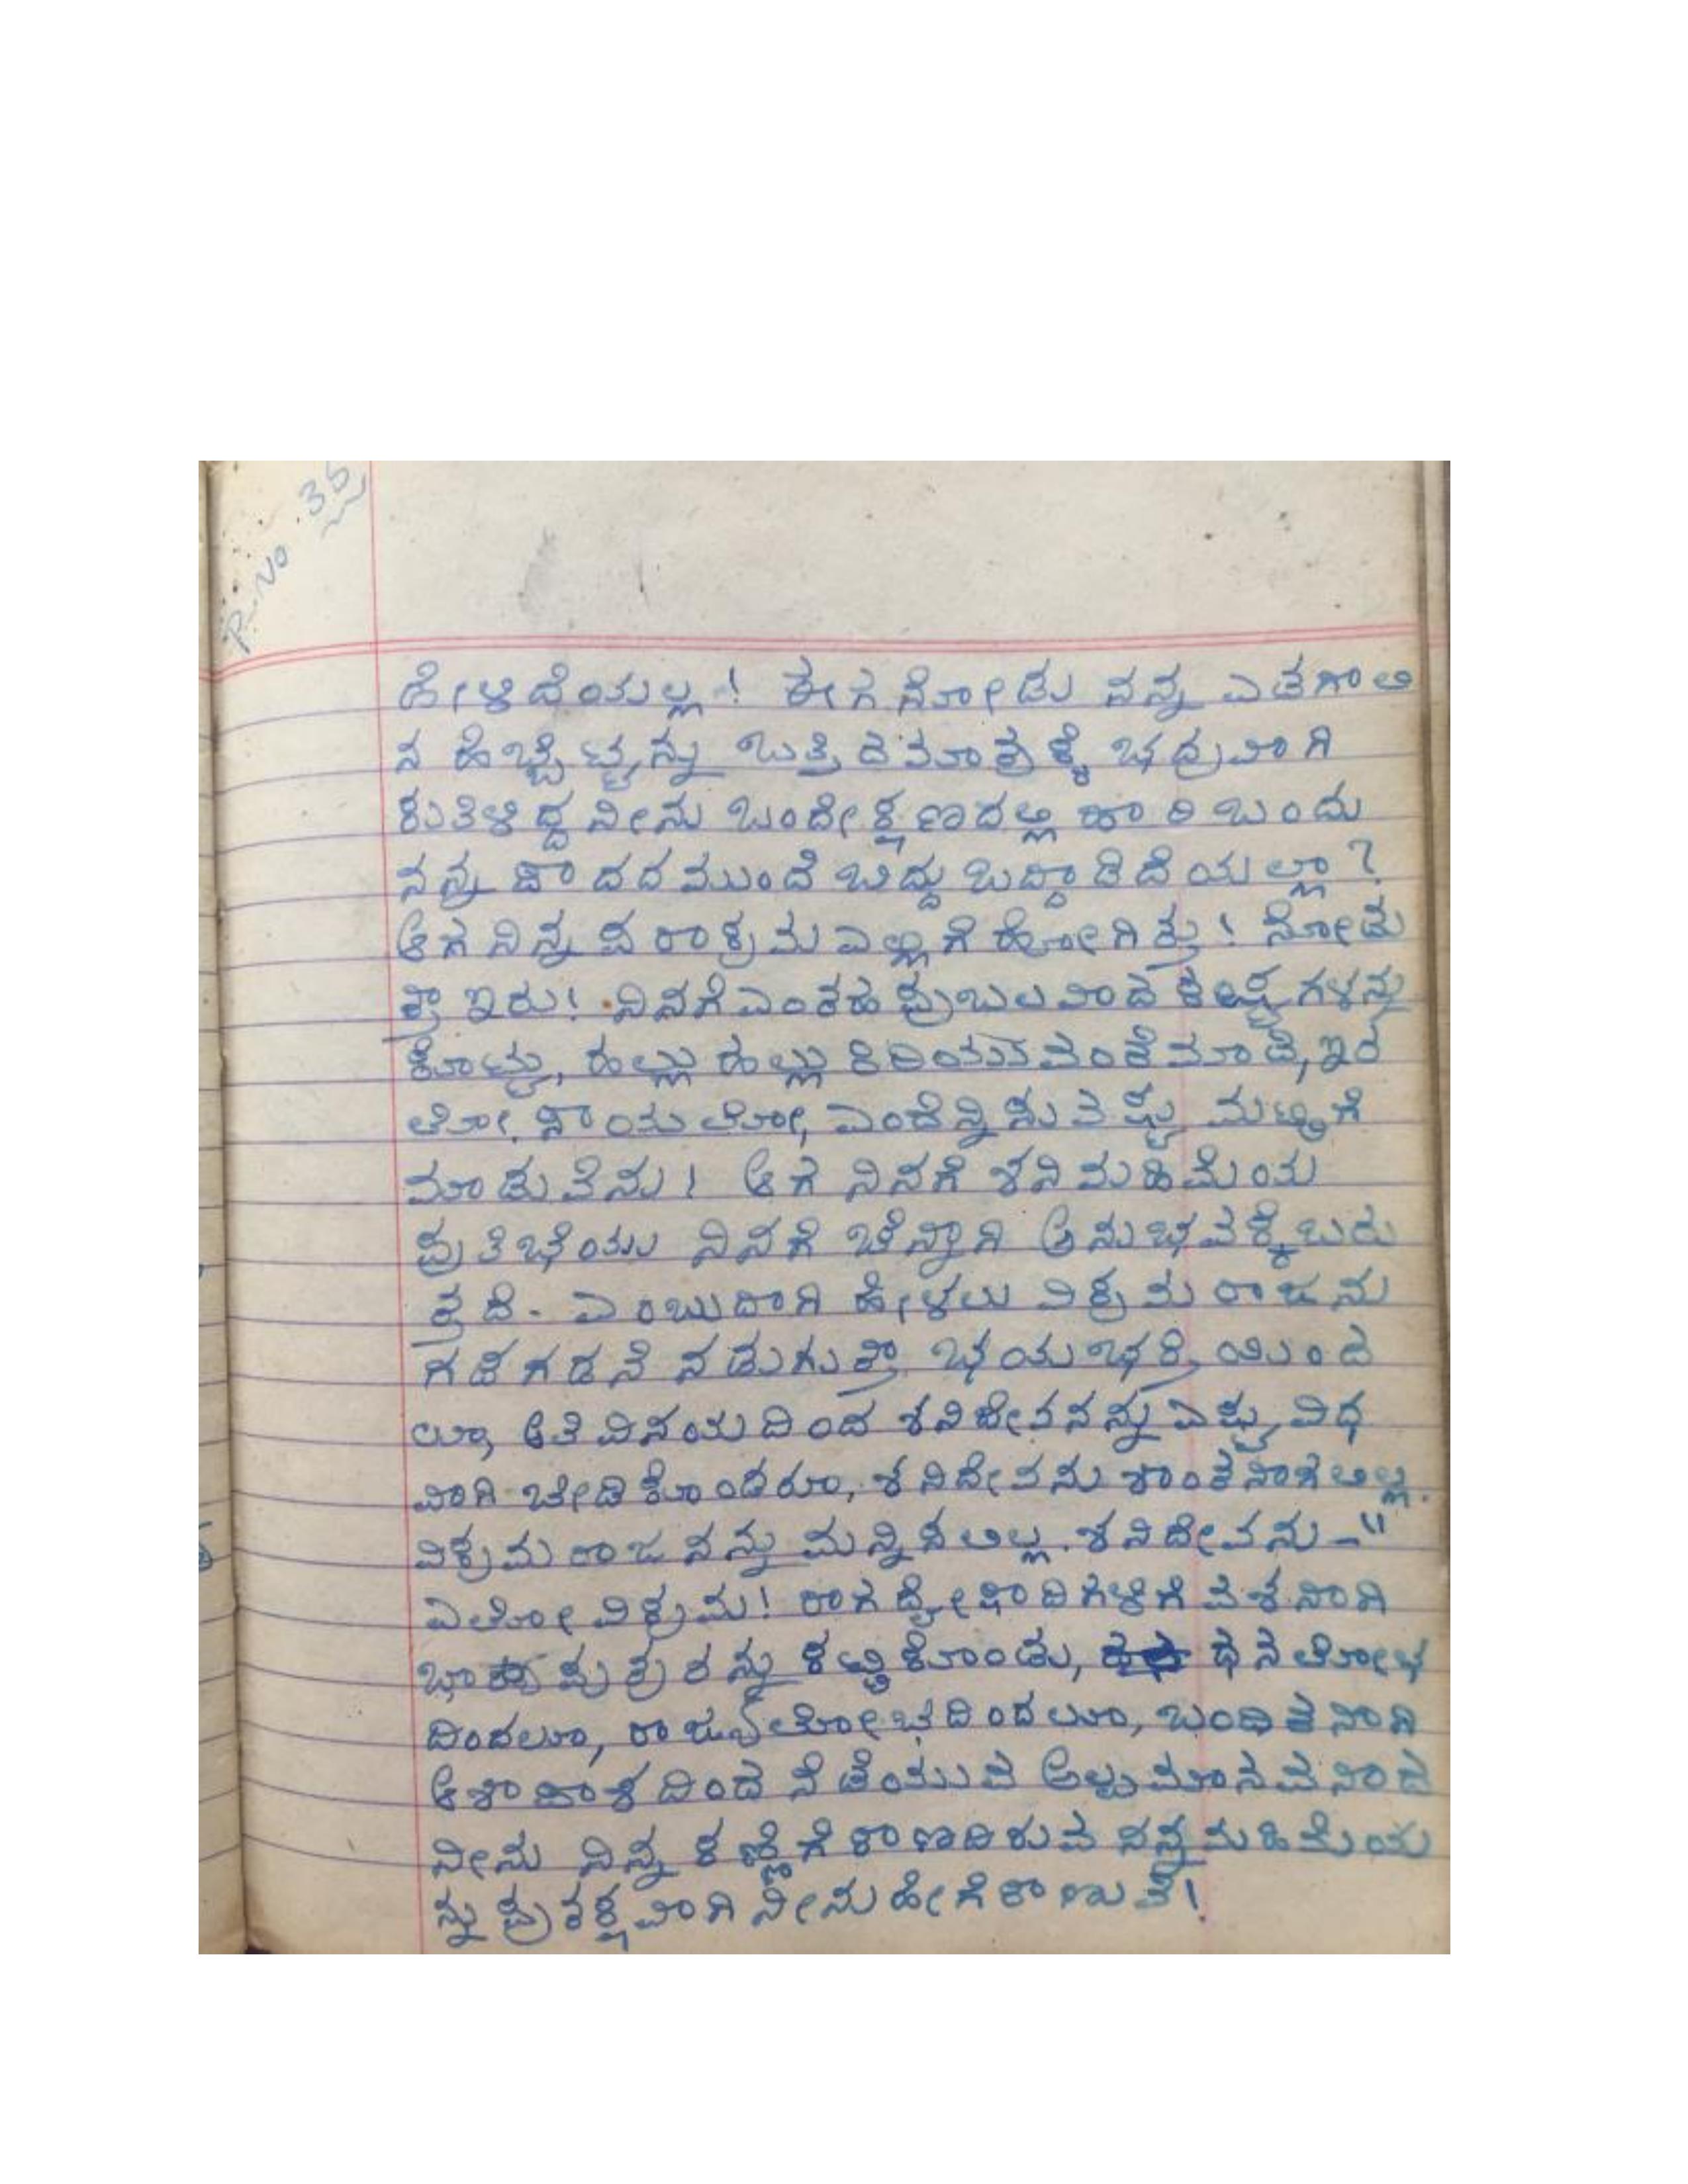 P.No 35
ಹೇಳಿದೆಯಲ್ಲ! ಈಗ ನೋಡು ನನ್ನ ಎಡಗಾಲಿ
ನ ಹೆಬ್ಬೆಟ್ಟನ್ನು ಒತ್ತಿದ ಮಾತ್ರಕ್ಕೆ ಭದ್ರವಾಗಿ
ಕುತಿಳಿದ್ದ ನೀನು ಒಂದೇ ಕ್ಷಣದಲ್ಲಿ ಹಾರಿ ಬಂದು
ನನ್ನ ಪಾದದ ಮುಂದೆ ಬಿದ್ದು ಒದ್ದಾಡಿದೆಯಲ್ಲಾ?
ಆಗ ನಿನ್ನ ಪರಾಕ್ರಮ ಎಲ್ಲಿಗೆ ಹೋಗಿತ್ತು! ನೋಡು
ತ್ತಾ ಇರು! ನಿನಗೆ ಎಂತಹ ಪ್ರಬಲವಾದ ಕಷ್ಟಗಳನ್ನು
ಕೊಟ್ಟು, ಹಲ್ಲು ಹಲ್ಲು ಕಿರಿಯುವಂತೆ ಮಾಡಿ, ಇರ
ಲೋ, ಸಾಯಲೋ, ಎಂದೆನ್ನಿಸುವಷ್ಟು ಮಟ್ಟಿಗೆ
ಮಾಡುವೆನು! ಆಗ ನಿನಗೆ ಶನಿಮಹಿಮೆಯ
ಪ್ರತಿಭೆಯು ನಿನಗೆ ಚೆನ್ನಾಗಿ ಅನುಭವಕ್ಕೆ ಬರು
ತ್ತದೆ. ಎಂಬುದಾಗಿ ಹೇಳಲು ವಿಕ್ರಮರಾಜನು
ಗಡಗಡನೆ ನಡುಗುತ್ತಾ ಭಯಭಕ್ತಿಯಿಂದ
ಲೂ, ಅತಿ ವಿನಯದಿಂದ ಶನಿದೇವನನ್ನು ಎಷ್ಟು ವಿಧ
ವಾಗಿ ಬೇಡಿಕೊಂಡರೂ, ಶನಿದೇವನು ಶಾಂತನಾಗಲಿಲ್ಲ.
ವಿಕ್ರಮರಾಜನನ್ನು ಮನ್ನಿಸಲಿಲ್ಲ. ಶನಿದೇವನು-"
ಎಲೋ ವಿಕ್ರಮ! ರಾಗದ್ವೇಷಾದಿಗಳಿಗೆ ವಶನಾಗಿ
ಪುತ್ರರನ್ನು ಕಟ್ಟಿಕೊಂಡು, ಧನಲೋಭ
ದಿಂದಲೂ, ರಾಜ್ಯಲೋಭದಿಂದಲೂ, ಬಂಧಿತನಾಗಿ
ಆಶಾಪಾಶದಿಂದ ನಡೆಯುವ ಅಲ್ಪಮಾನವನಾದ
ನೀನು ನಿನ್ನ ಕಣ್ಣಿಗೆ ಕಾಣದಿರುವ ನನ್ನ ಮಹಿಮೆಯ
ನ್ನು ಪ್ರತಕ್ಷವಾಗಿ ನೀನು ಹೇಗೆ ಕಾಣುತಿ!